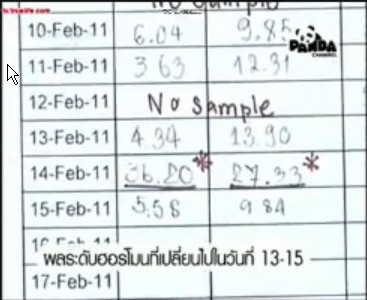 No sample
10-Feb-11 6.04 9.85
PANDA
CHANNEL
11-Feb-11 3 63 12.31
12-Feb-11 No sample
13-Feb-11 4.34 13.90
14-Feb-11 26.20* 27.33*
15-Feb-11 5.58 9 84
ผลระดับฮอร์โมนที่เปลี่ยนไปในวันที่ 13-15
17-Feb-11